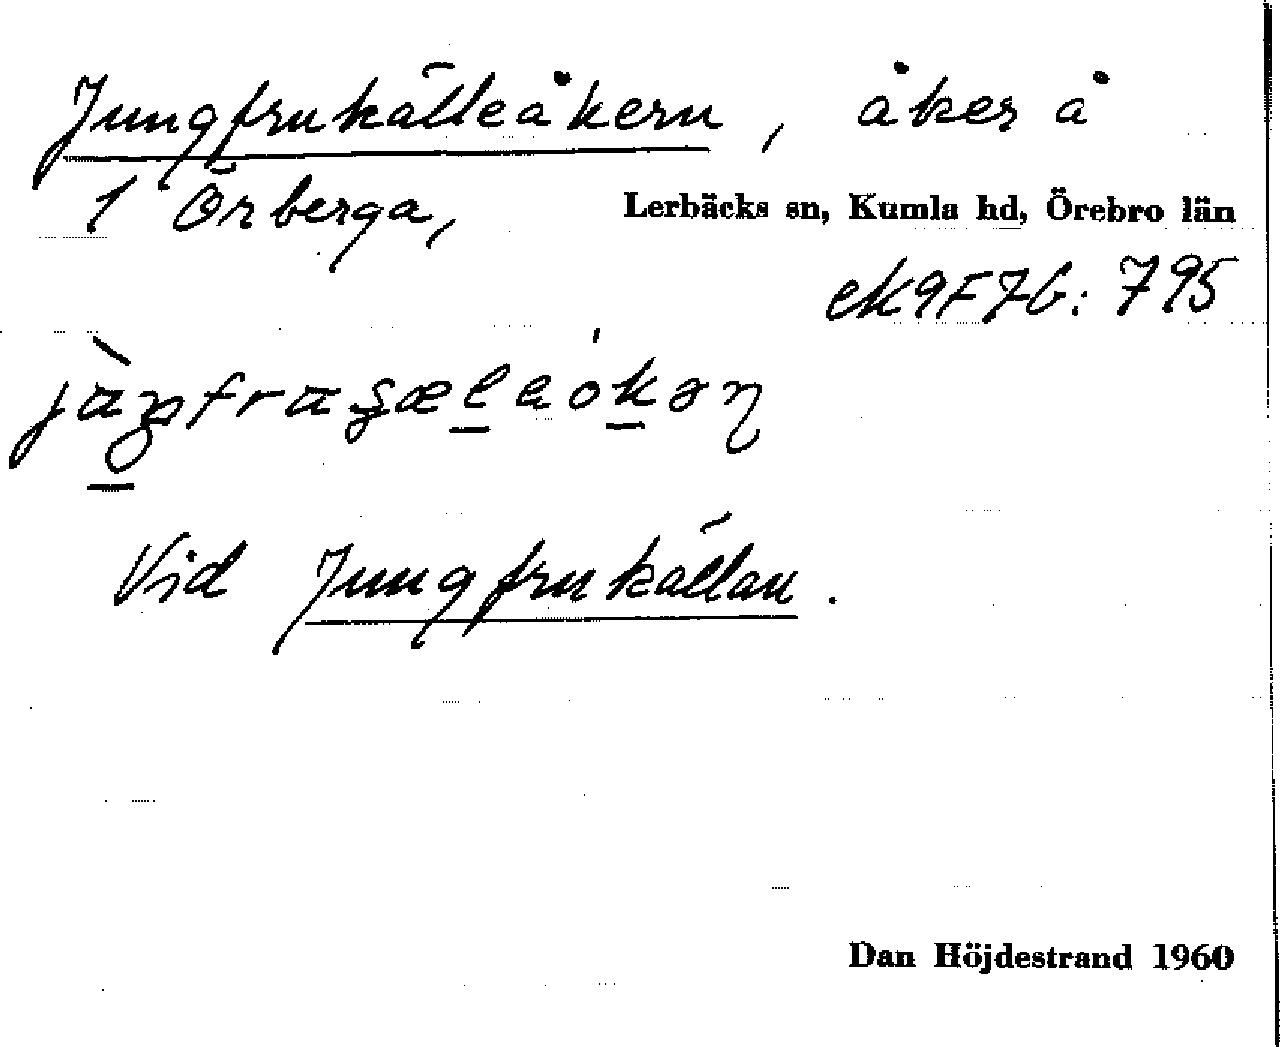 Jungfrukälleåkern, åker å
1 Örberga, Lerbäcks sn, Kumla hd, Örebro län
ek 9F7b: 795
Vid Jungfrukällan.
Dan Höjdestrand 1960